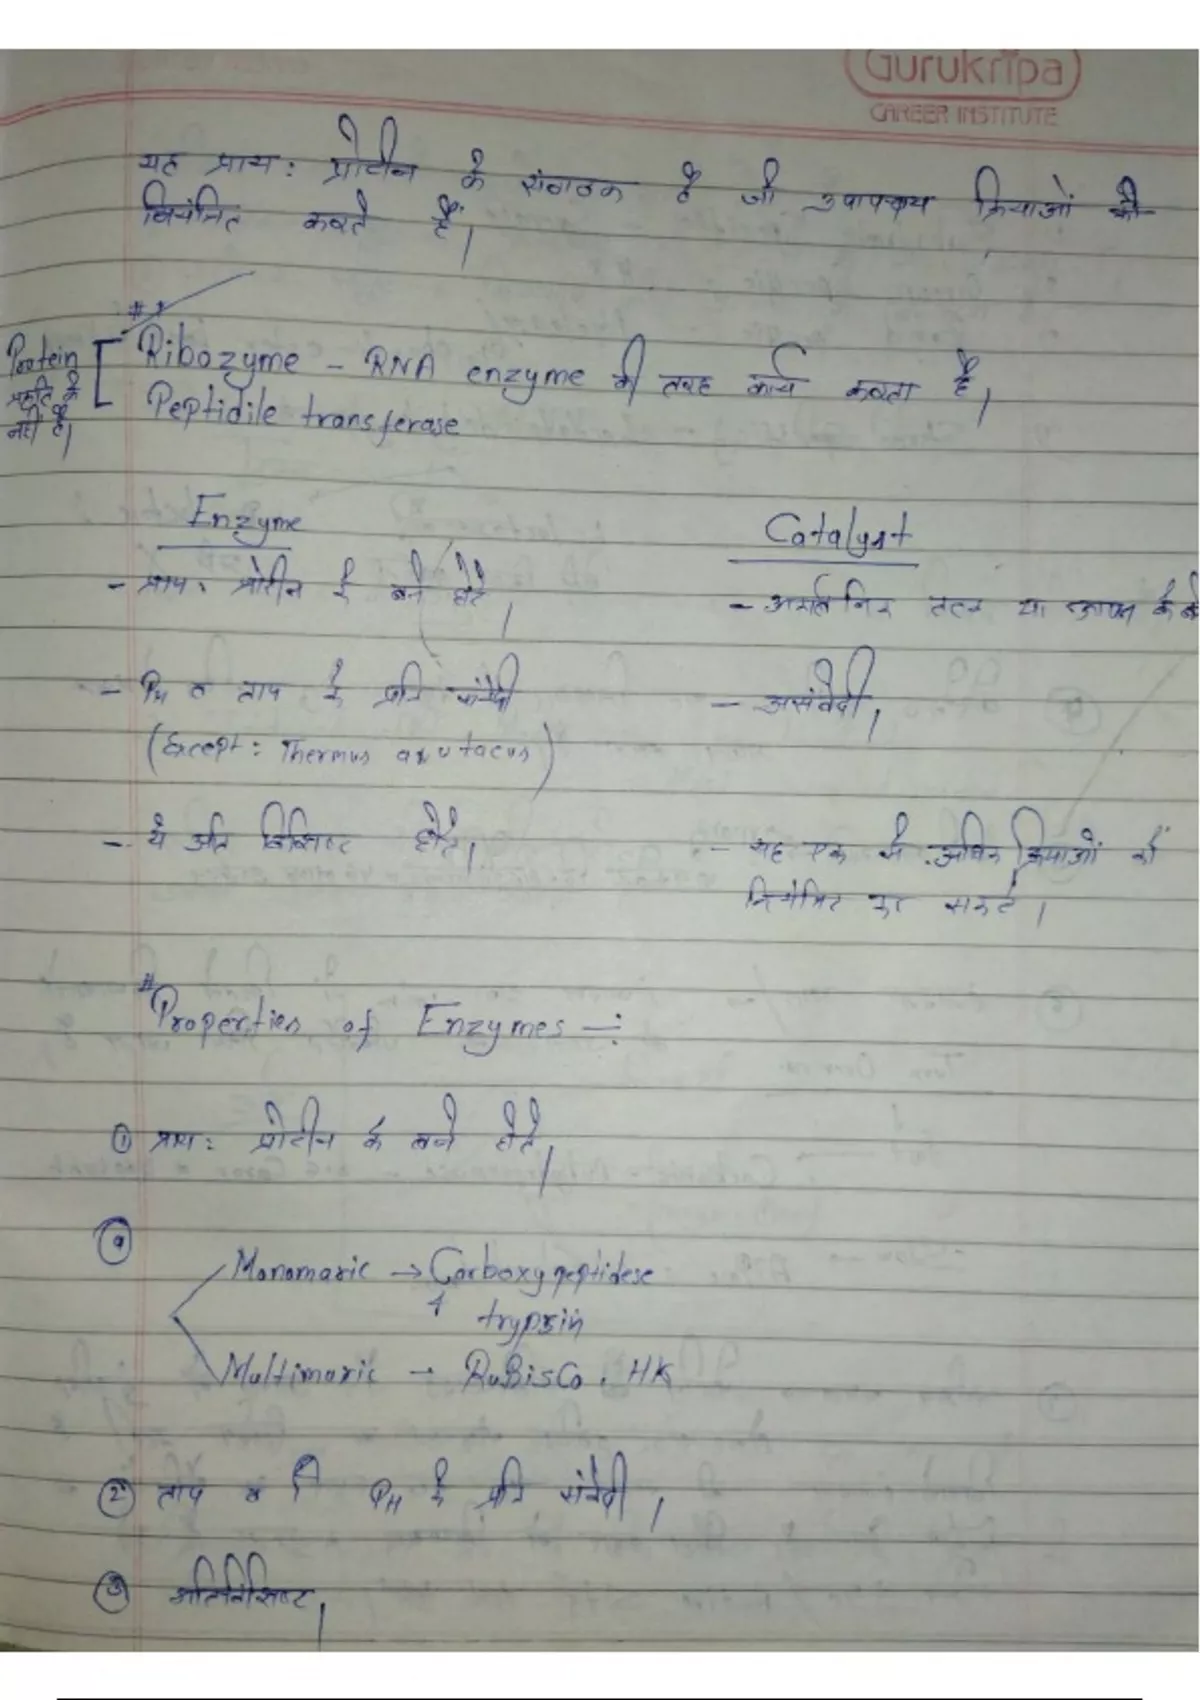 Gurukripa
CAREER INSTITUTE
यह प्राय: प्रोटीन के संगठक है जो उपापचय क्रियाओं को
नियंत्रित करते हैं।
Protein
प्रकृति के
नहीं है।
Ribozyme - RNA enzyme की तरह कार्य करता है।
Peptidile transferase
Enzyme
Catalyst
- प्राय: प्रोटीन के बने होते।
- तत्व या के
- PH व ताप के प्रति संवेदी
- असंवेदी।
(Except: Thermus)
- ये अति विशिष्ट होते।
- यह एक से अधिक क्रियाओं को
नियंत्रित कर सकते।
# Properties of Enzymes -:
① प्राय: प्रोटीन के बने होते।
Monomaric → Carboxypeptidese
trypsin
Multimaric → RuBisCo, HK
② ताप व PH के प्रति संवेदी।
③ अतिविशिष्ट।